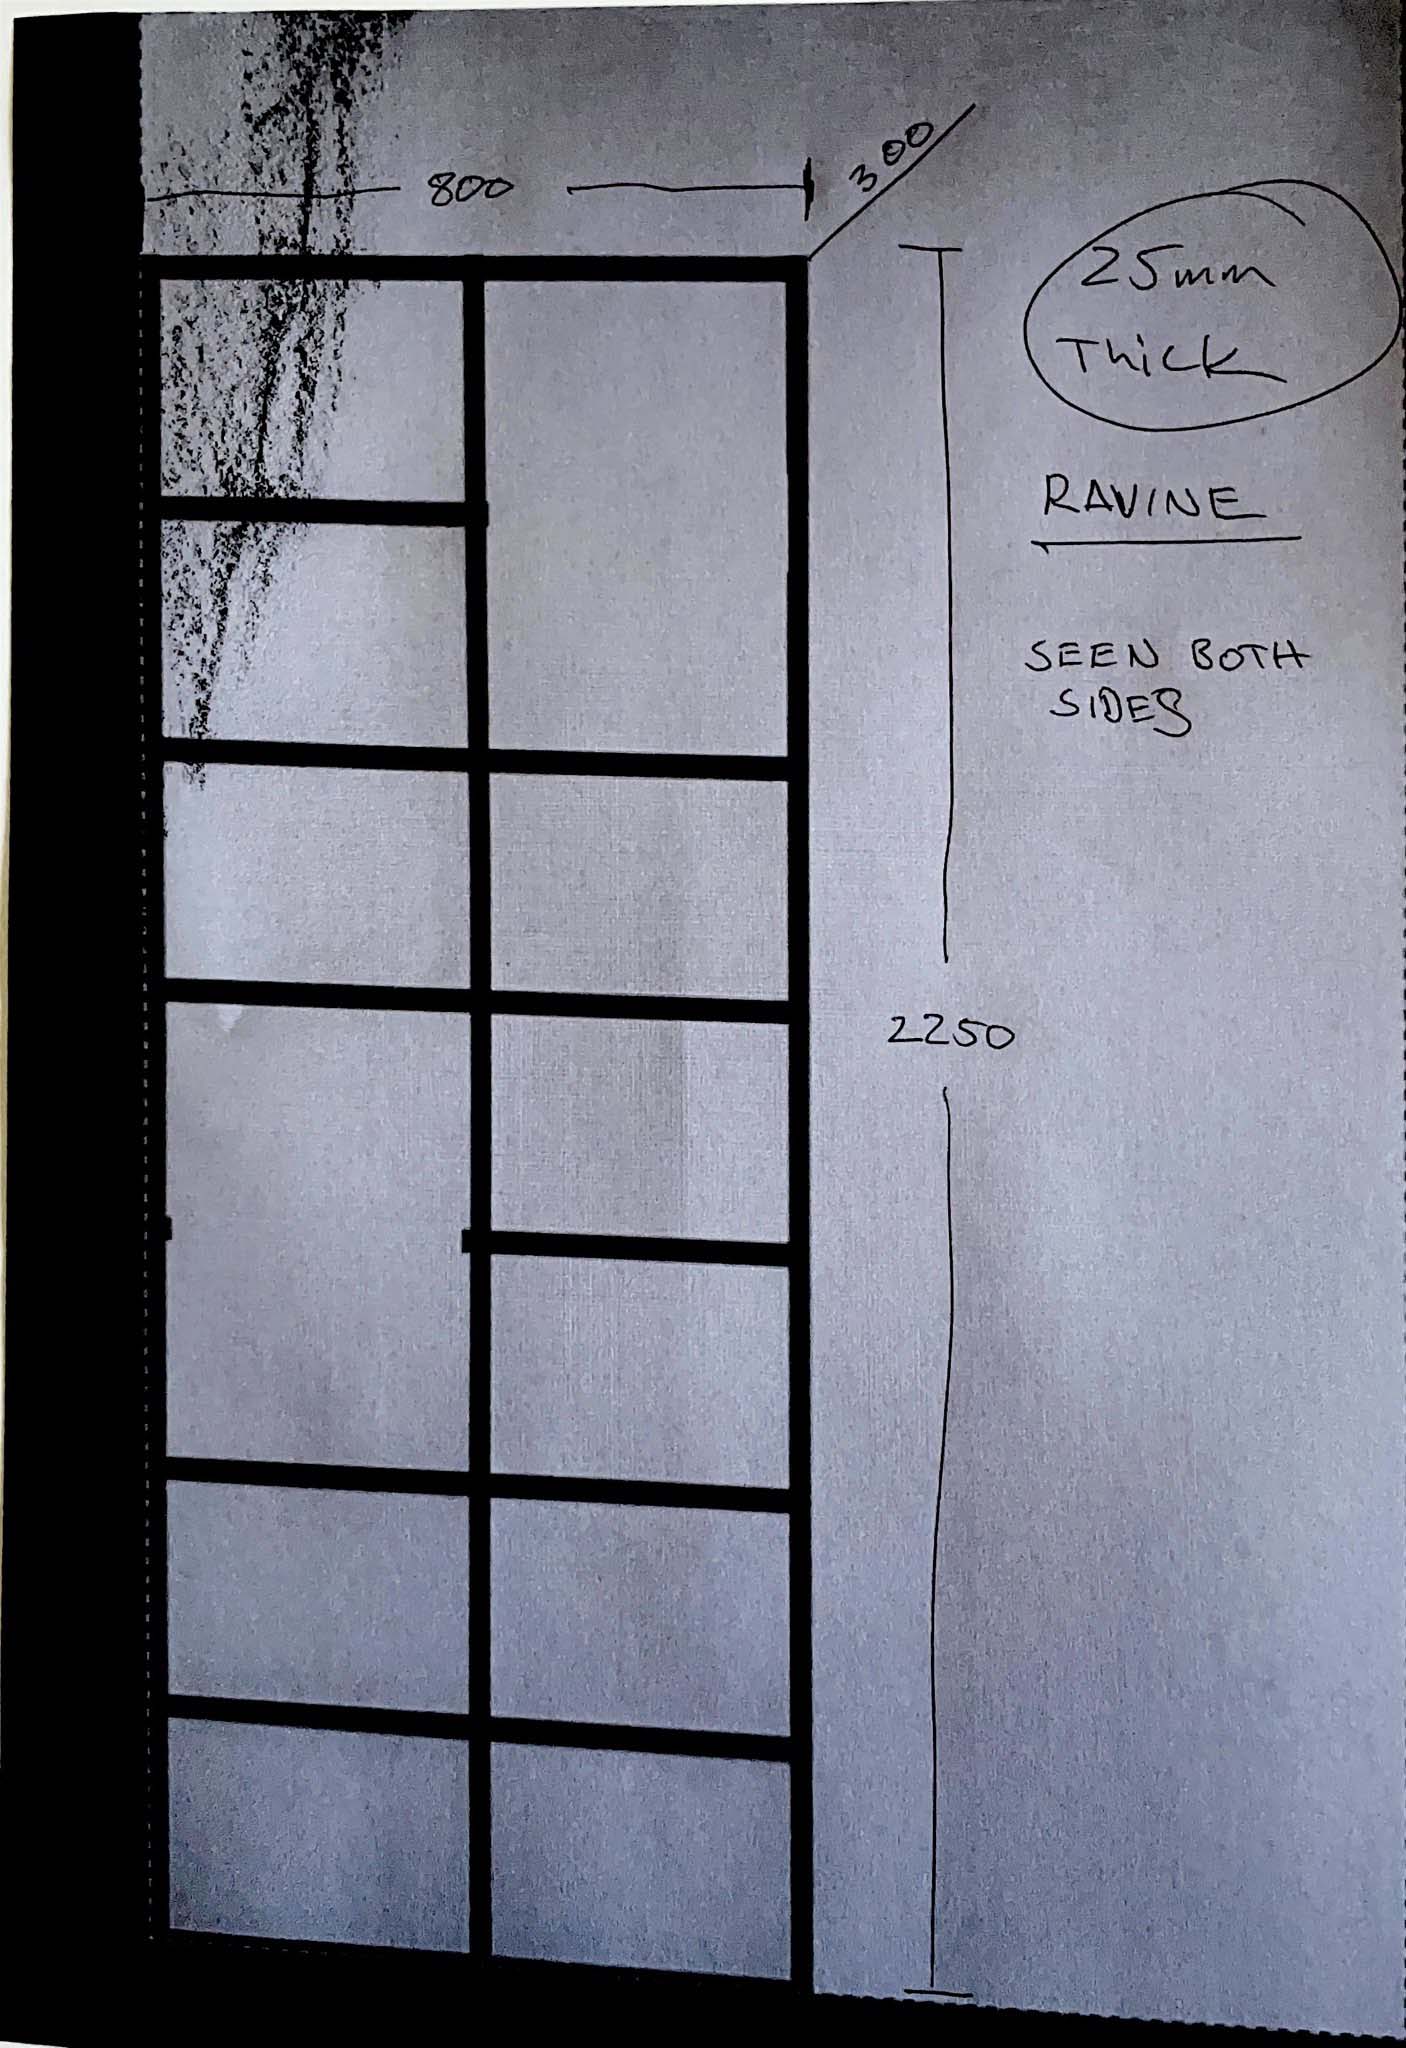 800
300
25mm
Thick
RAVINE
SEEN BOTH
SIDES
2250